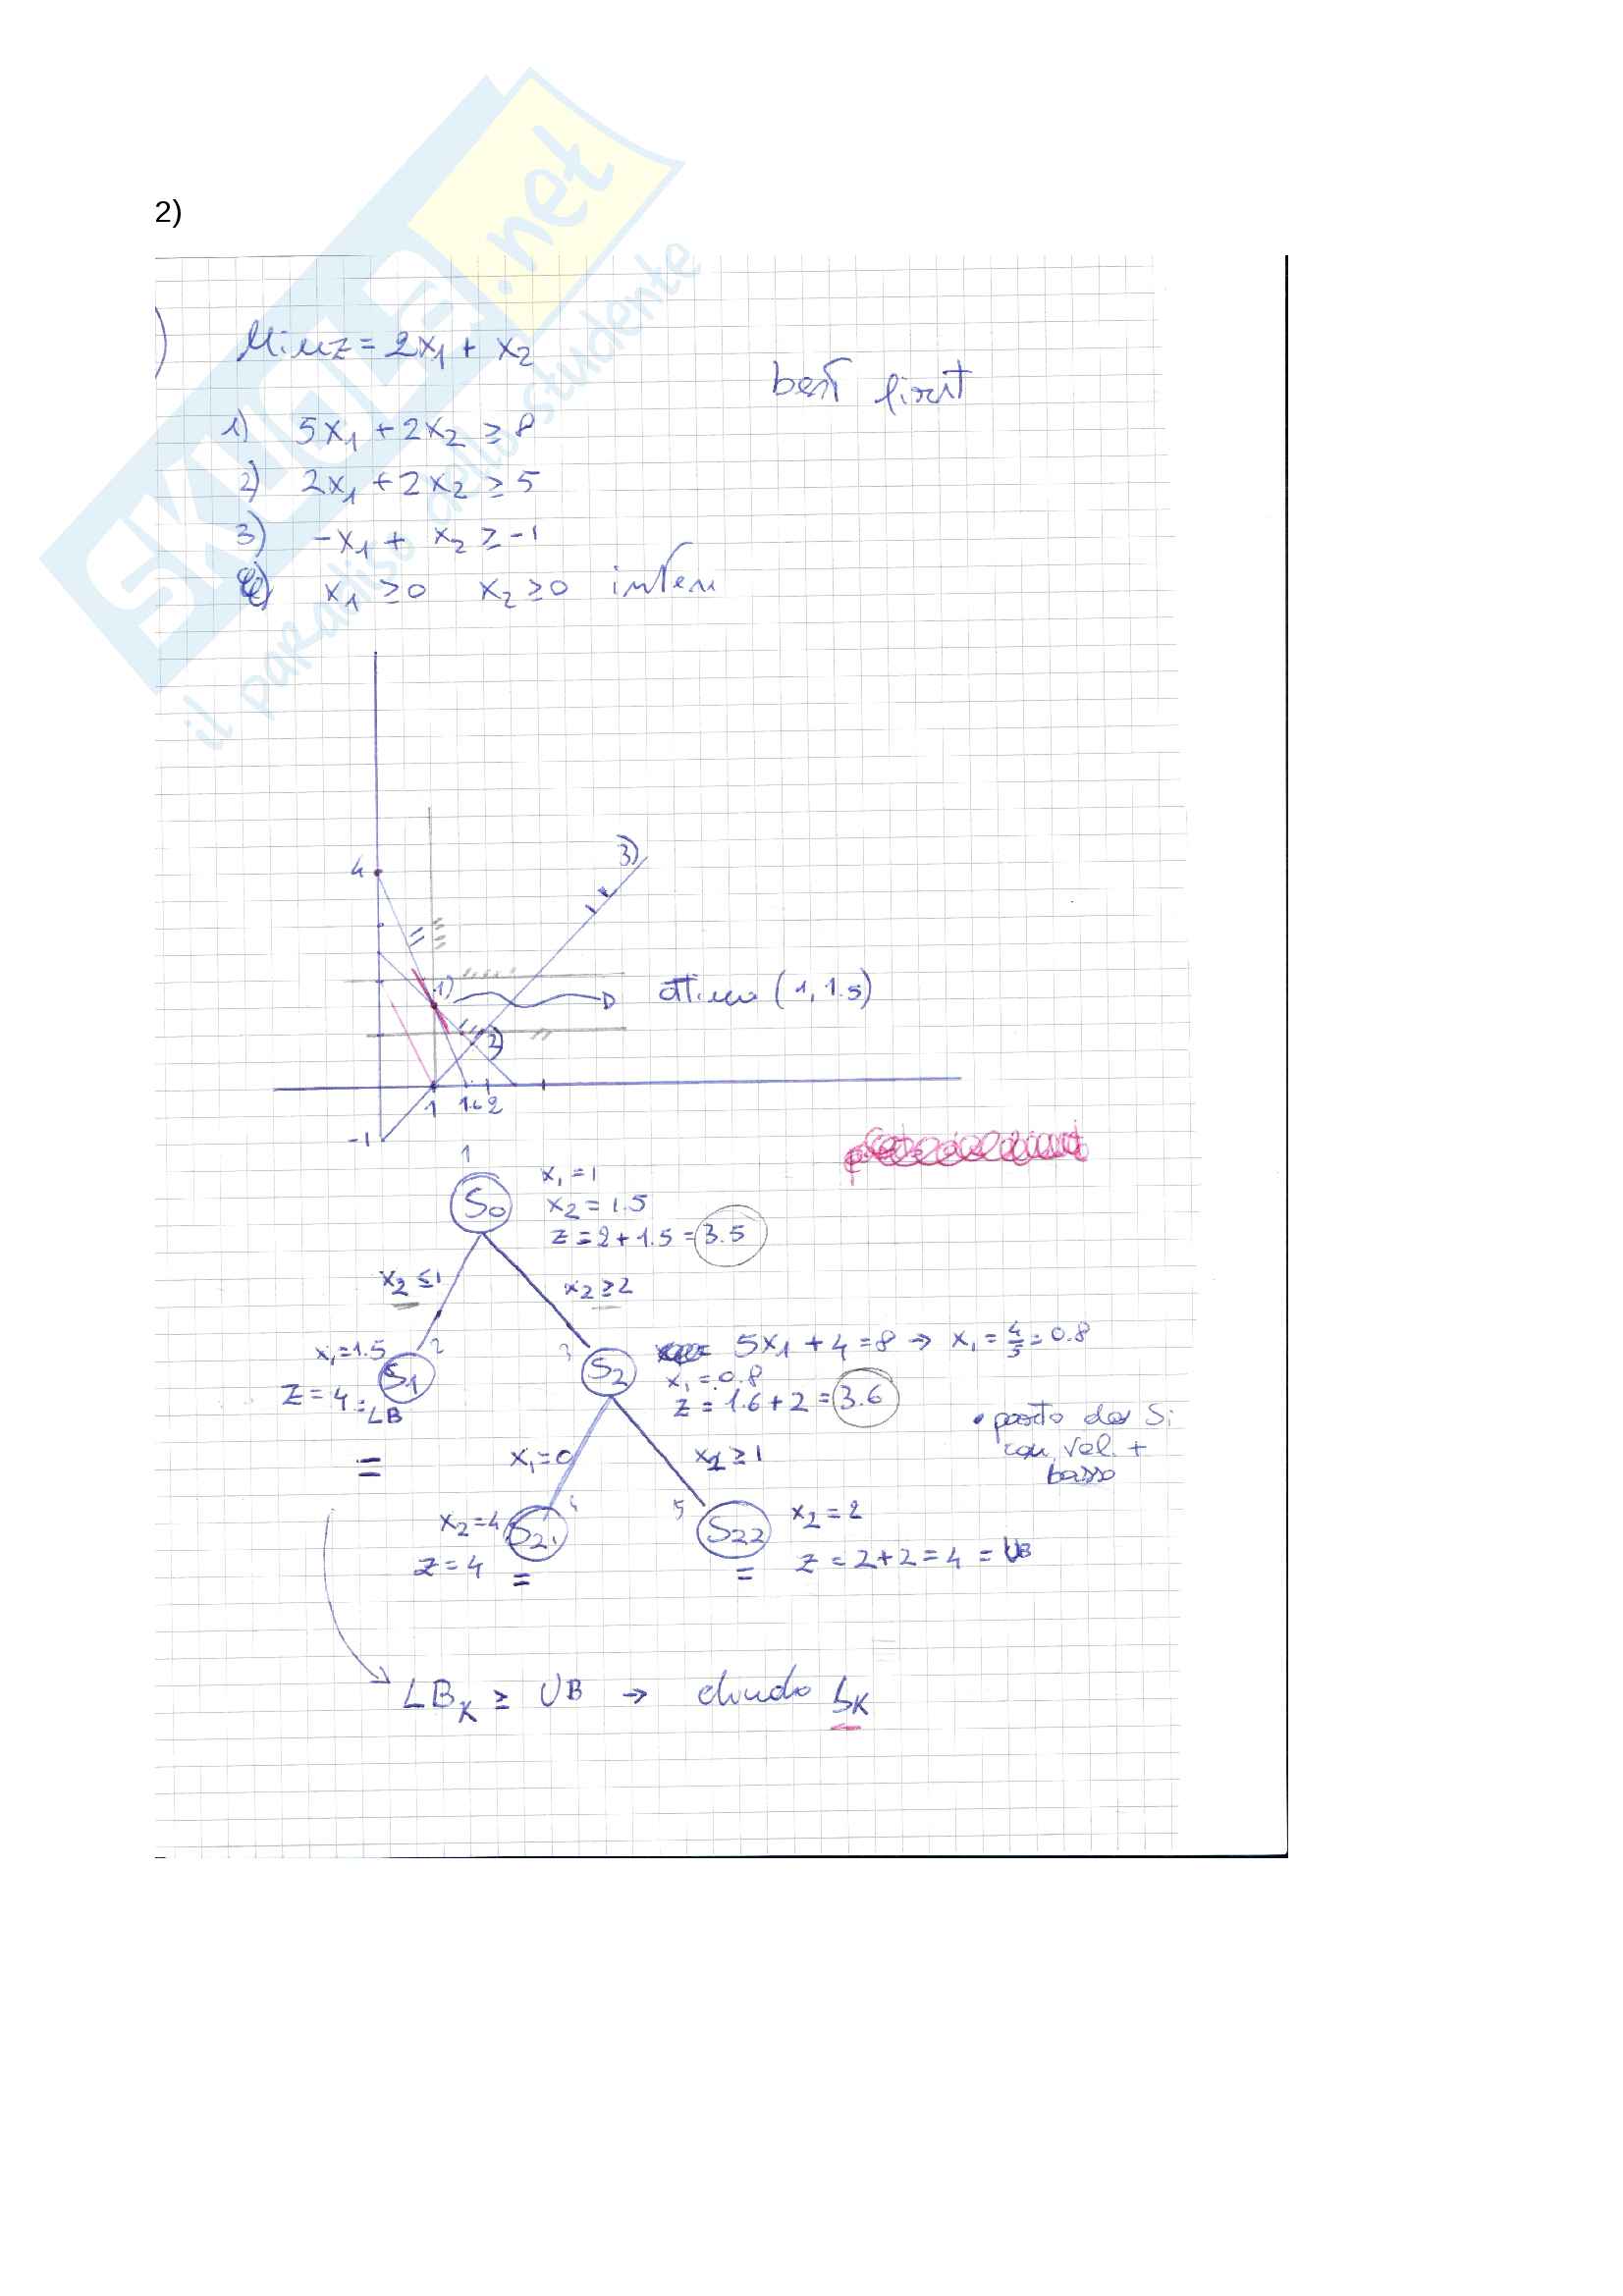 2)
SKUOLA.net
il paradiso dello studente
)
Min z = 2x₁ + x₂
best first
1) 5x₁ + 2x₂ ≥ 8
2) 2x₁ + 2x₂ ≥ 5
3) -x₁ + x₂ ≥ -1
x₁ ≥ 0 x₂ ≥ 0 interi
3)
4
1)
ottimo (1, 1.5)
2)
1 1.6 2
-1
1
S₀
x₁ = 1
x₂ = 1.5
z = 2 + 1.5 = 3.5
x₂ ≤ 1
x₂ ≥ 2
x₁ = 1.5
2
S₁
z = 4 = LB
=
3
S₂
5x₁ + 4 = 8 → x₁ = 4/5 = 0.8
x₁ = 0.8
z = 1.6 + 2 = 3.6
• parto da Si
con val. +
basso
x₁ = 0
≥ 1
x₂ = 4
4
S₂₁
z = 4
=
5
S₂₂
x₂ = 2
z = 2 + 2 = 4 = UB
=
LBₖ ≥ UB → chiudo Sₖ